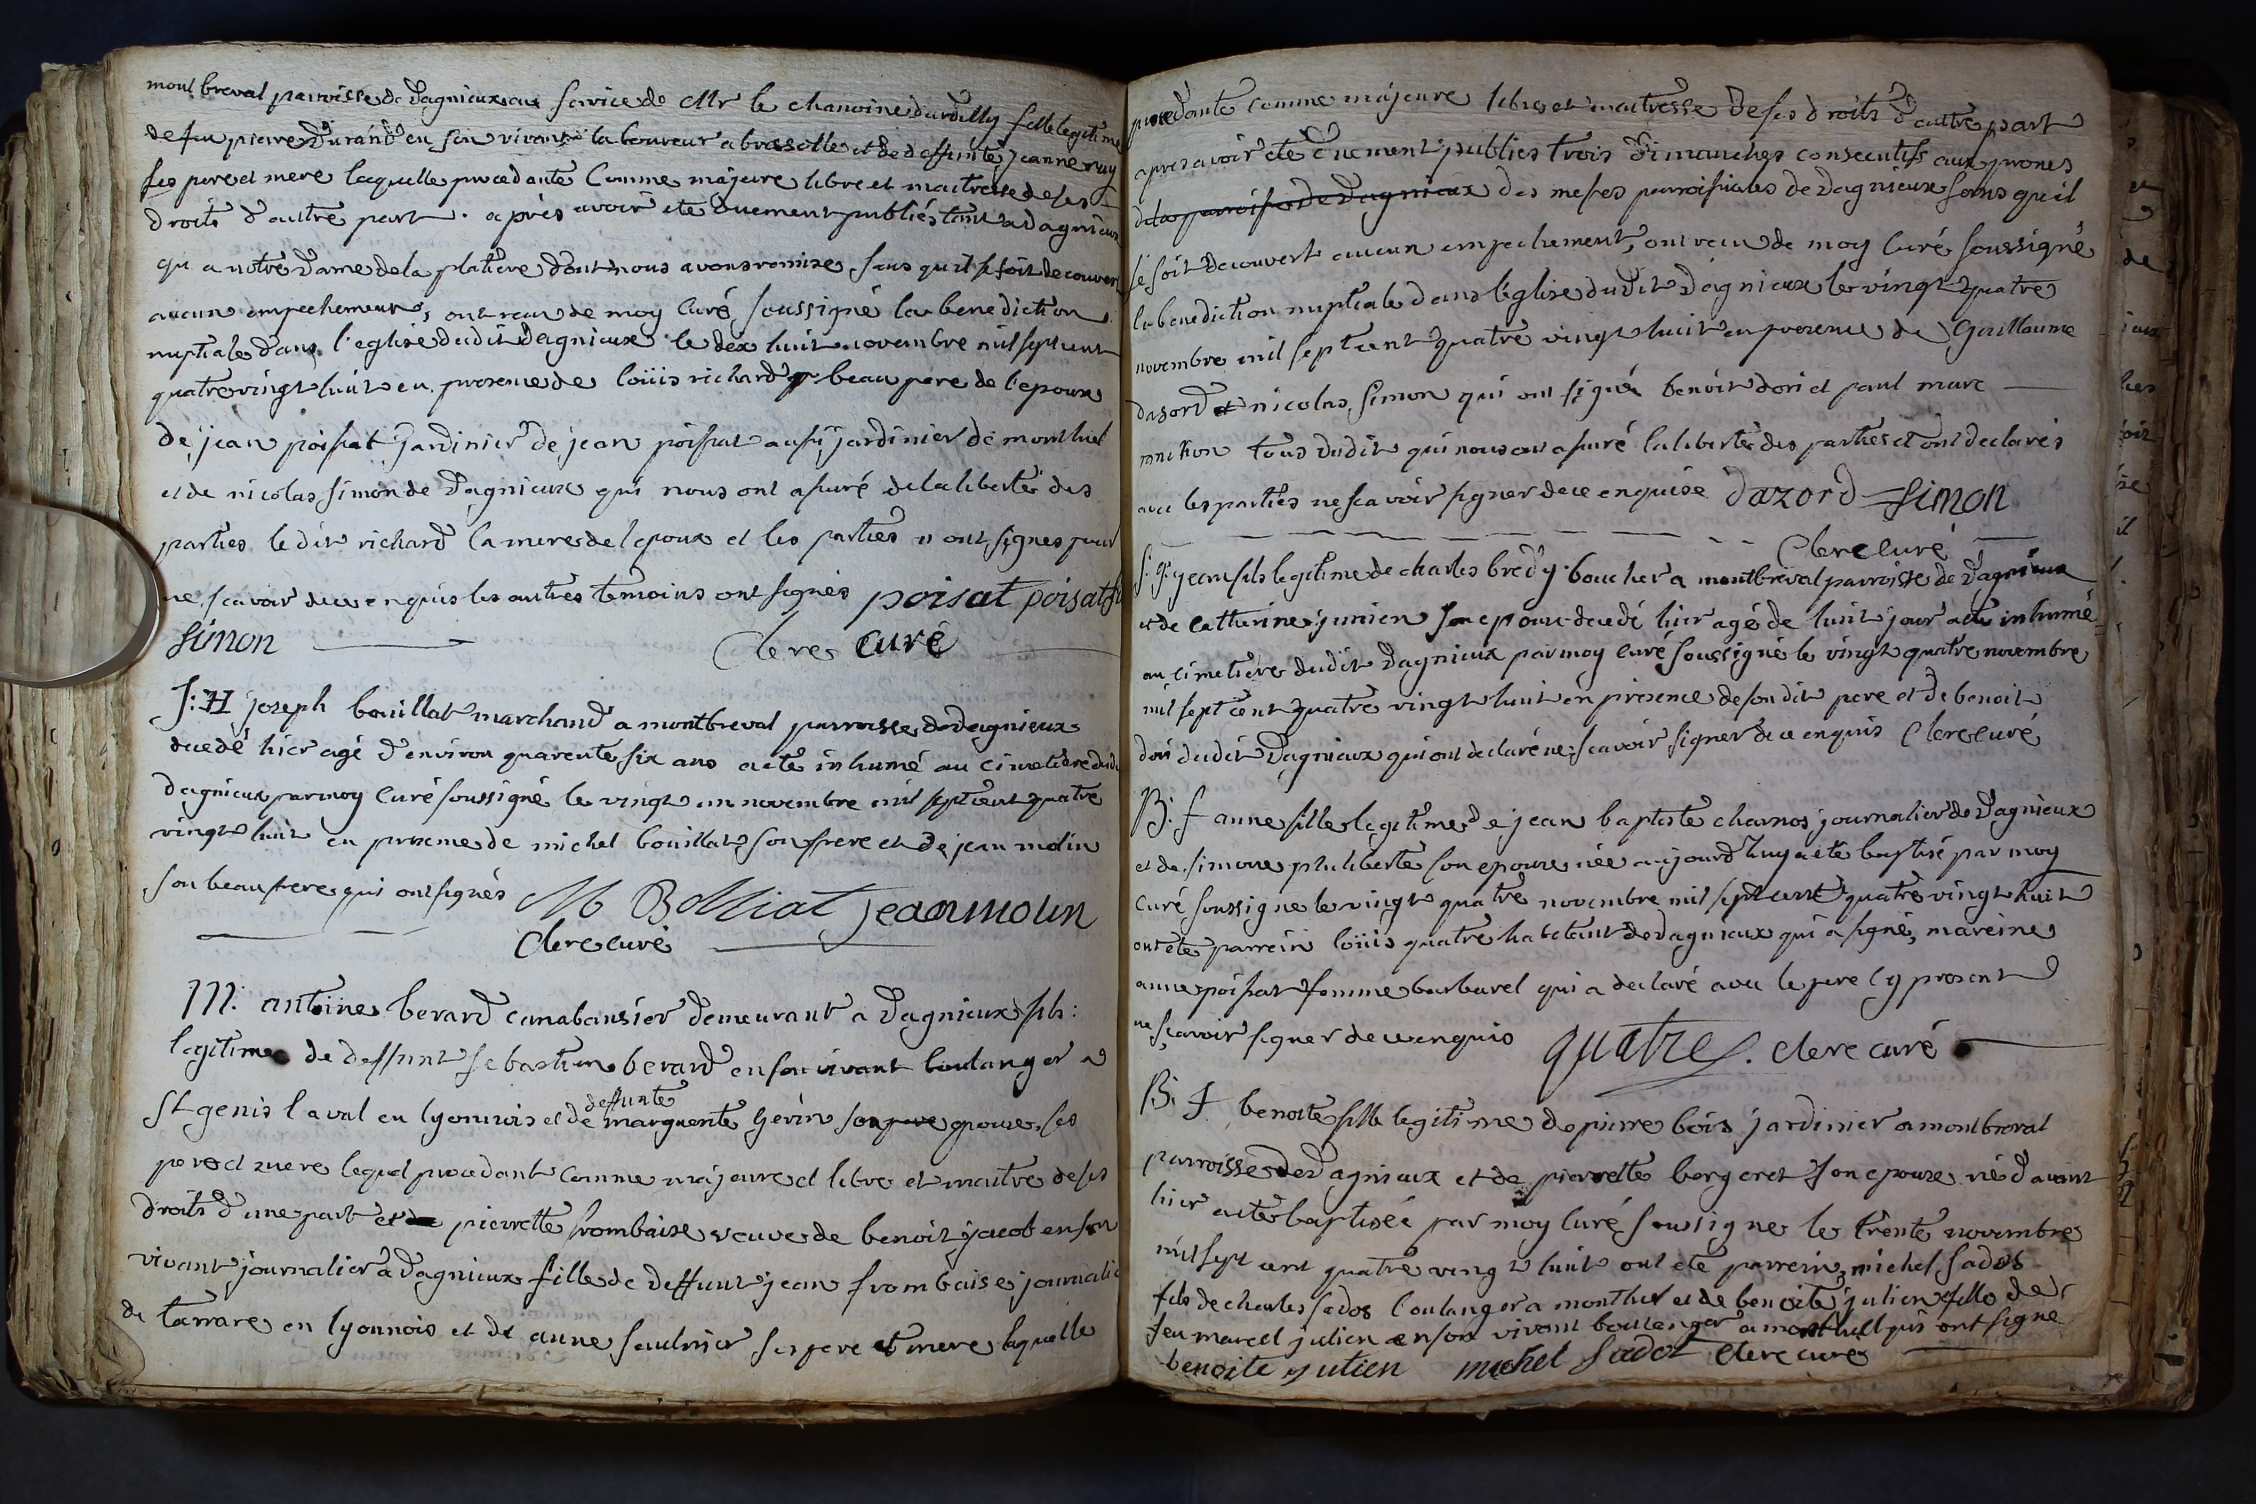 montbreval parroisse de Dagnieux au service de Mr le chanoine dardilly fille legitime
de feu pierre Durand en son vivant laboureur a bressolle et de deffunte jeanne ruy
ses pere et mere laquelle procedante comme majeure libre et maitresse de ses
droits d'autre part. après avoir ete duement publiés tant a dagnieux
qu a notre dame de la platiere dont nous avons remise, sans qu il se soit decouvert
aucun empechement, ont recu de moy curé soussigné la benediction
nuptiale dans l'eglise dudit Dagnieux le dix huit novembre mil sept cent
quatrevingt huit en presence de loüis richard beau pere de l'epoux
de jean poisat jardinier de jean poisat aussi jardinier de montluel
et de nicolas simon de Dagnieux qui nous ont asuré de la liberté des
parties le dit richard la mere de l epoux et les parties n ont signés pour
ne scavoir de ce enquis les autres temoins ont signés poisat poisat fils
simon
Clerc curé
S: H joseph bouillat marchand a montbreval parroisse de Dagnieux
decedé hier agé d'environ quarente six ans a eté inhumé au cimetiere dudit
dagnieux par moy curé soussigné le vingt un novembre mil sept cent quatre
vingt huit en presence de michel bouillat son frere et de jean molin
son beau frere qui ont signés M Bolliat jean molin
Clerc curé
M: antoine berard canabassier demeurant a Dagnieux fils:
legitime de deffunt sebastien berard en son vivant boulanger a
St genis laval en lyonnois et de marguerite gerin son pere epouse, ses
deffunte
pere et mere lequel procedant comme majeure et libre et maitre de ses
droits d'une part et de pierrette frombaise veuve de benoit jacob en son
vivant journalier a Dagnieux fille de deffunt jean frombaise journalier
de tarrare en lyonnois et de anne saulnier ses pere et mere laquelle
procedante comme majeure libre et maitresse de ses droits d'autre part
apres avoir eté duement publies trois dimanches consecutifs aux prones
de la parroisse de Dagnieux des messes parroissiales de Dagnieux sans qu il
se soit decouvert aucun empechement, ont recu de moy curé soussigné
la benediction nuptiale dans l'eglise dudit Dagnieux le vingt quatre
novembre mil sept cent quatre vingt huit en presence de Guillaume
dazord et nicolas simon qui ont signé benoit dori et paul marc
tous dudit qui nous ont asuré la liberté des parties et ont declarés
avec les parties ne scavoir signer de ce enquise dazord simon
Clerc curé
S: g: jean fils legitime de charles bredy boucher a montbreval parroisse de Dagnieux
et de catherine junien son epouse decedé hier agé de huit jour a eté inhumé
au cimetiere dudit Dagnieux par moy curé soussigné le vingt quatre novembre
mil sept cent quatre vingt huit en presence de son dit pere et de benoit
dori dudit Dagnieux qui ont declaré ne scavoir signer de ce enquis Clerc curé
B: f anne fille legitime de jean baptiste charnos journalier de Dagnieux
et de simone philiberte son epouse née aujourd huy a eté baptisé par moy
curé soussigne le vingt quatre novembre mil sept cent quatre vingt huit
ont eté parrein loüis quatre habitant de Dagnieux qui a signé, mareine
anne poisat femme barbarel qui a declaré avec le pere cy present
ne scavoir signer de ce enquis quatre. clerc curé
B: f benoite fille legitime de pierre bois jardinier a montbreval
parroisse de Dagnieux et de pierrette bergeret son epouse né d avant
hier a eté baptiséé par moy curé soussigne le trente novembre
mil sept cent quatre vingt huit ont ete parrein michel sados
fils de charles sados boulanger a montluel et de benoite julien fille de
feu marcel julien en son vivant boulanger a montluel qui ont signe
benoite julien michel sadot clerc cure